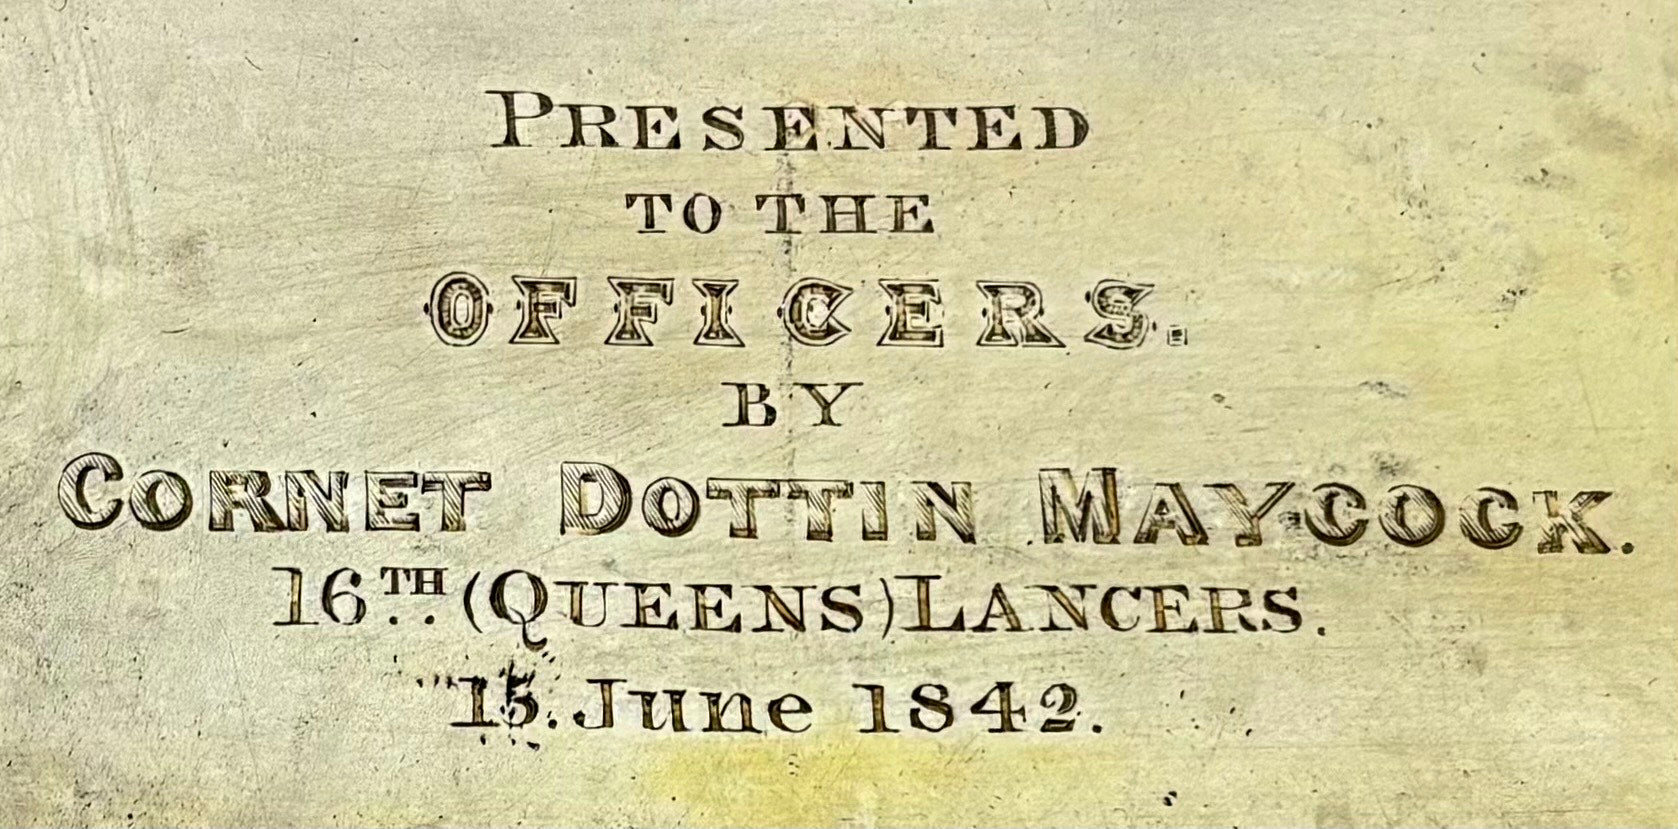 PRESENTED
TO THE
OFFICERS.
BY
CORNET DOTTIN MAYCOCK.
16TH (QUEENS) LANCERS.
15. June 1842.